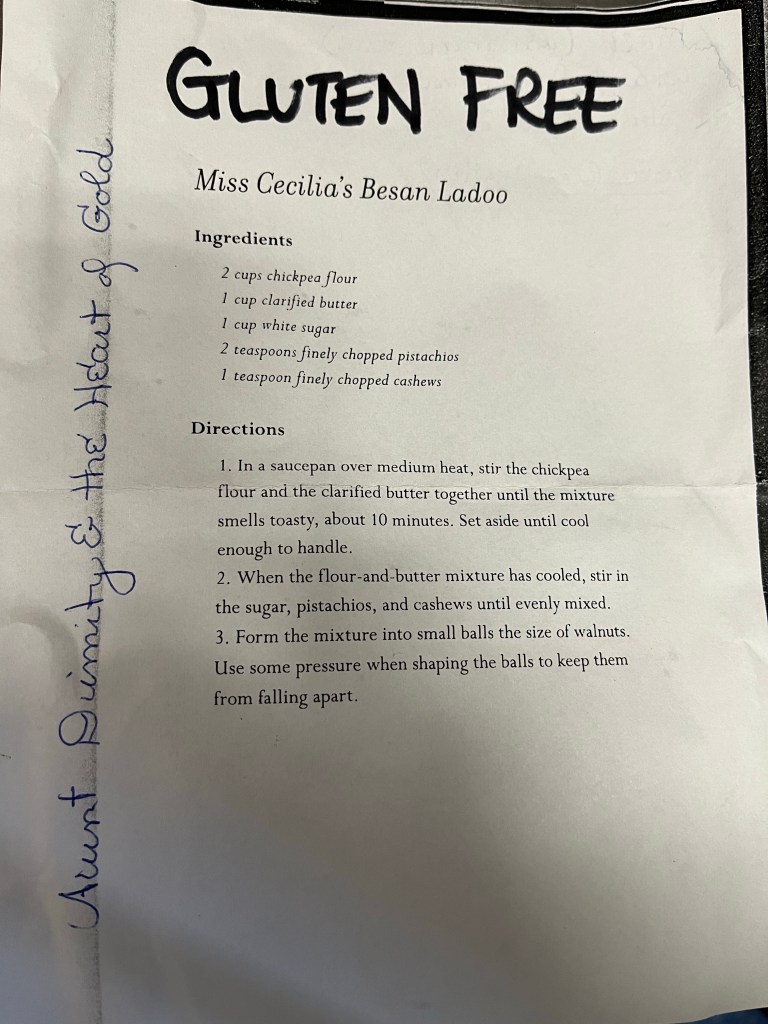 GLUTEN FREE
Miss Cecilia's Besan Ladoo
Ingredients
2 cups chickpea flour
1 cup clarified butter
1 cup white sugar
2 teaspoons finely chopped pistachios
1 teaspoon finely chopped cashews
Directions
1. In a saucepan over medium heat, stir the chickpea
flour and the clarified butter together until the mixture
smells toasty, about 10 minutes. Set aside until cool
enough to handle.
2. When the flour-and-butter mixture has cooled, stir in
the sugar, pistachios, and cashews until evenly mixed.
3. Form the mixture into small balls the size of walnuts.
Use some pressure when shaping the balls to keep them
from falling apart.
Aunt Dimity & the Heart of Gold